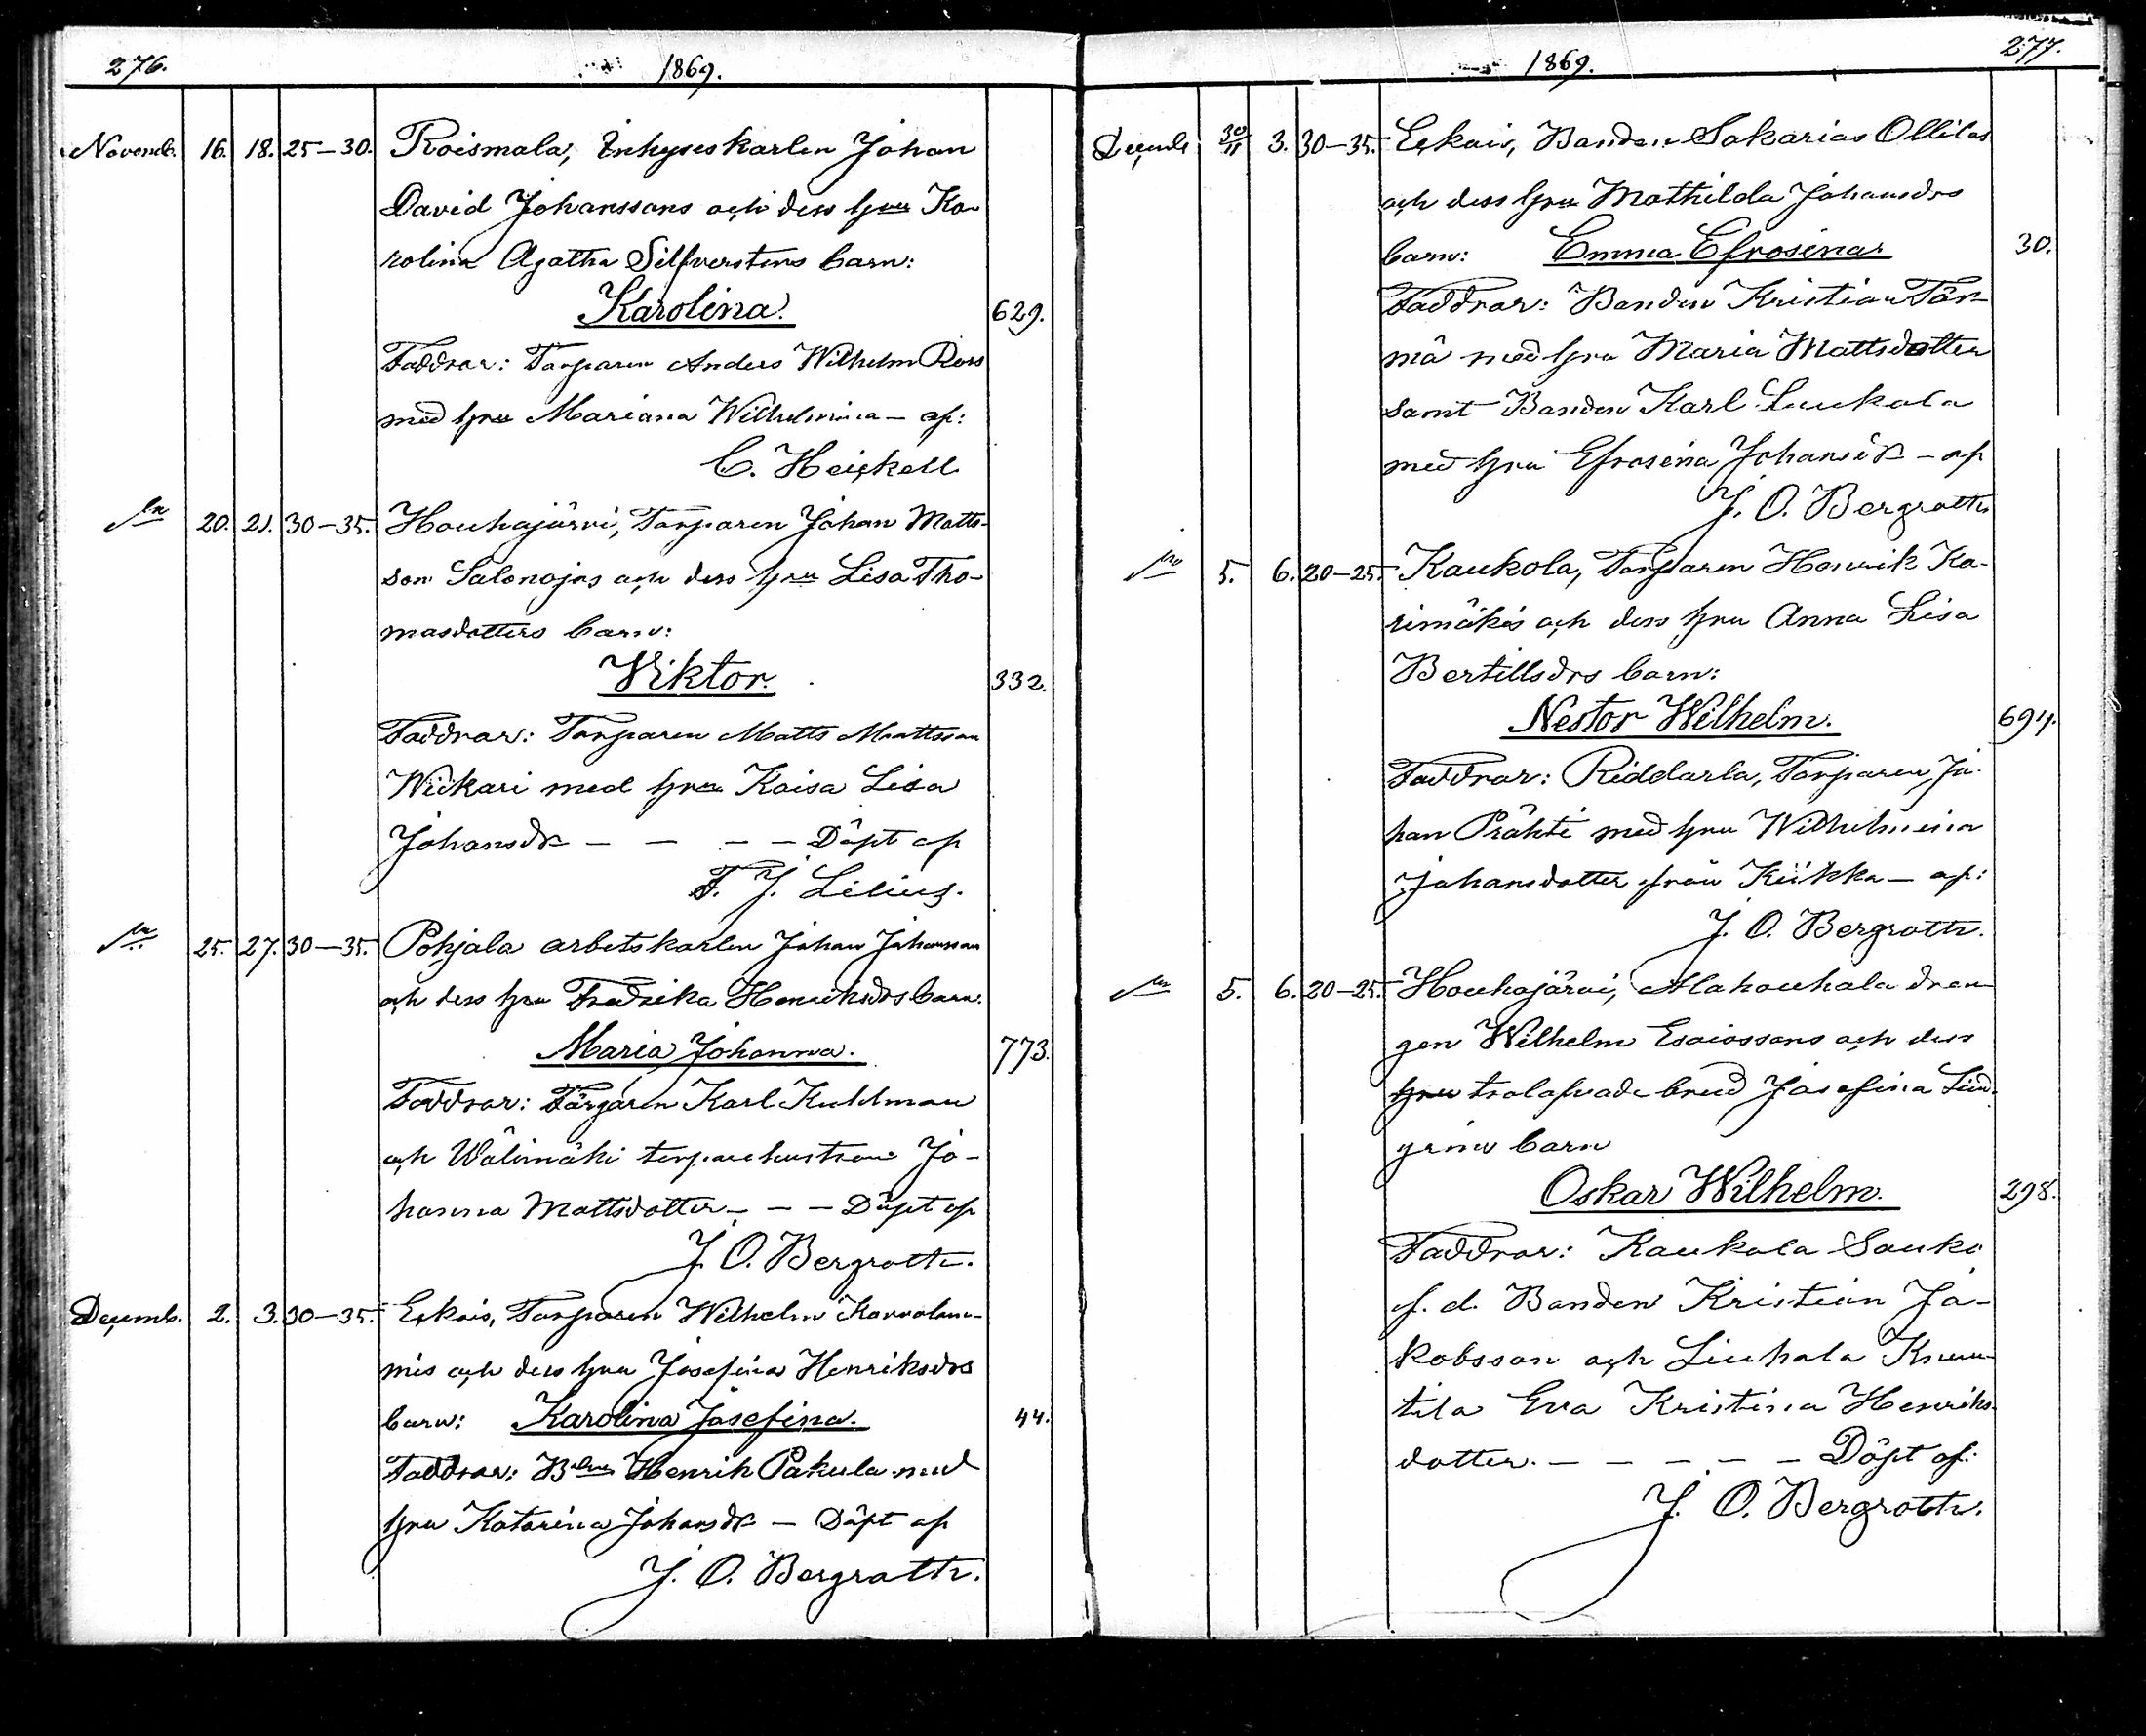 276.
1869.
Novemb. 16. 18. 25–30. Roismala, Inhyseskarlen Johan
David Johanssons och dess hru Ka-
rolina Agatha Silfverstens barn:
Karolina. 629.
Faddrar: Torparen Anders Wilhelm Ross
med hru Mariana Wilhelmina – af:
C. Heickell
20. 21. 30–35. Houhajärvi, Torparen Johan Matts-
son Salonojas och dess hru Lisa Tho-
masdotters barn:
Viktor. 332.
Faddrar: Torparen Matts Mattsson
Wiikari med hru Kaisa Lisa
Johansdr – – – – Döpt af
F. J. Lilius.
25. 27. 30–35. Pohjala arbetskarlen Johan Johansson
och dess hru Fredrika Henriksdrs barn.
Maria Johanna. 773.
Faddrar: Färgaren Karl Kuhlman
och Wälimäki torparehustrun Jo-
hanna Mattsdotter – – – Döpt af
J. O. Bergroth.
Decemb. 2. 3. 30–35. Eckois, Torparen Wilhelm
och dess hru Josefina Henriksdrs
barn: Karolina Josefina. 44.
Faddrar: Bden Henrik Pakula med
hru Katarina Johansdr – Döpt af
J. O. Bergroth.
1869.
277.
Decemb 30/11 3. 30–35. Eckois, Bonden Sakarias Ollilas
och dess hru Mathilda Johansdrs
barn: Emma Efrosina 30.
Faddrar: Bonden Kristian Tör-
mä med hru Maria Mattsdotter
samt Bonden Karl Laukola
med hru Efrosina Johansdr – af
J. O. Bergroth
5. 6. 20–25. Kaukola, Torparen Henrik Ka-
rimäkis och dess hru Anna Lisa
Bertillsdrs barn:
Nestor Wilhelm. 694.
Faddrar: Riddarla, Torparen Jo-
han Prähti med hru Wilhelmina
Johansdotter från Kiikka – af:
J. O. Bergroth.
5. 6. 20–25. Houhajärvi, Alahouhala drän-
gen Wilhelm Esaiassons och dess
hru trolofvade brud Josefina Lind-
grens barn
Oskar Wilhelm. 298.
Faddrar: Kaukola Sauko
f. d. Bonden Kristian Ja-
kobsson och Liuhala Knuu-
tila Eva Kristina Henriks-
dotter. – – – – – Döpt af:
J. O. Bergroth.